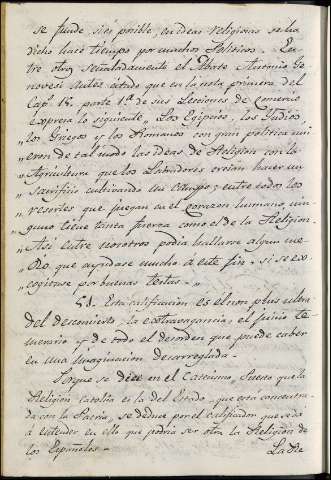 se funde si es posible, en ideas religiosas se ha
dicho hace tiempo por muchos Politicos. En-
tre otros señaladamente el Abate Antonio Ge-
novesi Autes citado que en la nota primera del
Cap.º 18. parte 1.ª de sus Lecciones de Comercio
expresa lo siguiente „ Los Egipcios, los Judios
„ los Griegos y los Romanos con gran politica uni
„ eron de tal modo las ideas de Religion con la
„ Agricultura que los Labradores creian hacer un
„ sacrificio cultivando un campo; y entre todos los
„ resortes que juegan en el corazon humano, nin-
„ guno tiene tanta fuerza como el de la Religion.
„ Asi entre nosotros podia hallarse algun me-
„ dio, que ayudase mucho á este fin, si se ex-
„ cogiese por buenas testas. „
51. Esta calificacion es el non plus ultra
del descomiento, la extravagancia, el juicio te-
merario y de todo el desorden que puede caber
en una imaginacion descarreglada.
Porque se dice en el Catecismo, Puesto que la
Religion Catolica es la del Estado, que esta consuetu-
da con la Patria, se deduce por el calificador que se dá
á entender en ello que podria ser otra la Religion de
los Españoles.
La Re